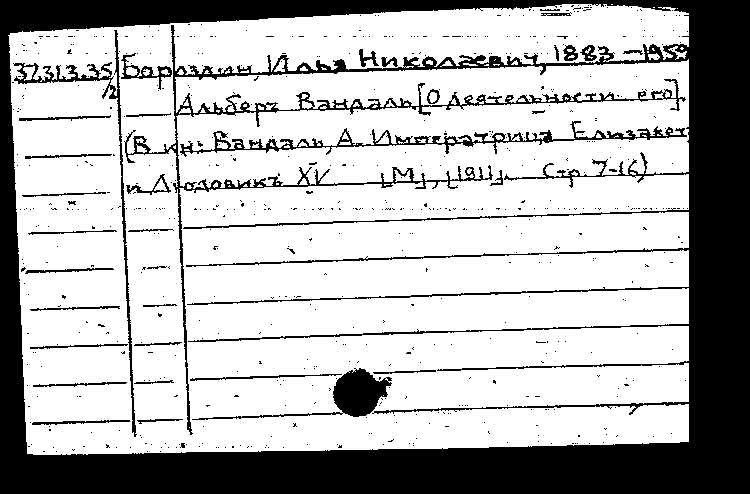 37.31.3.35 Бороздин, Илья Николаевич, 1883–1959
/2 Альберъ Вандаль. [О деятельности его].
(В кн: Вандаль, А. Императрица Елизавет
и Людовикъ XV [М], [1911]. Стр. 7-16)